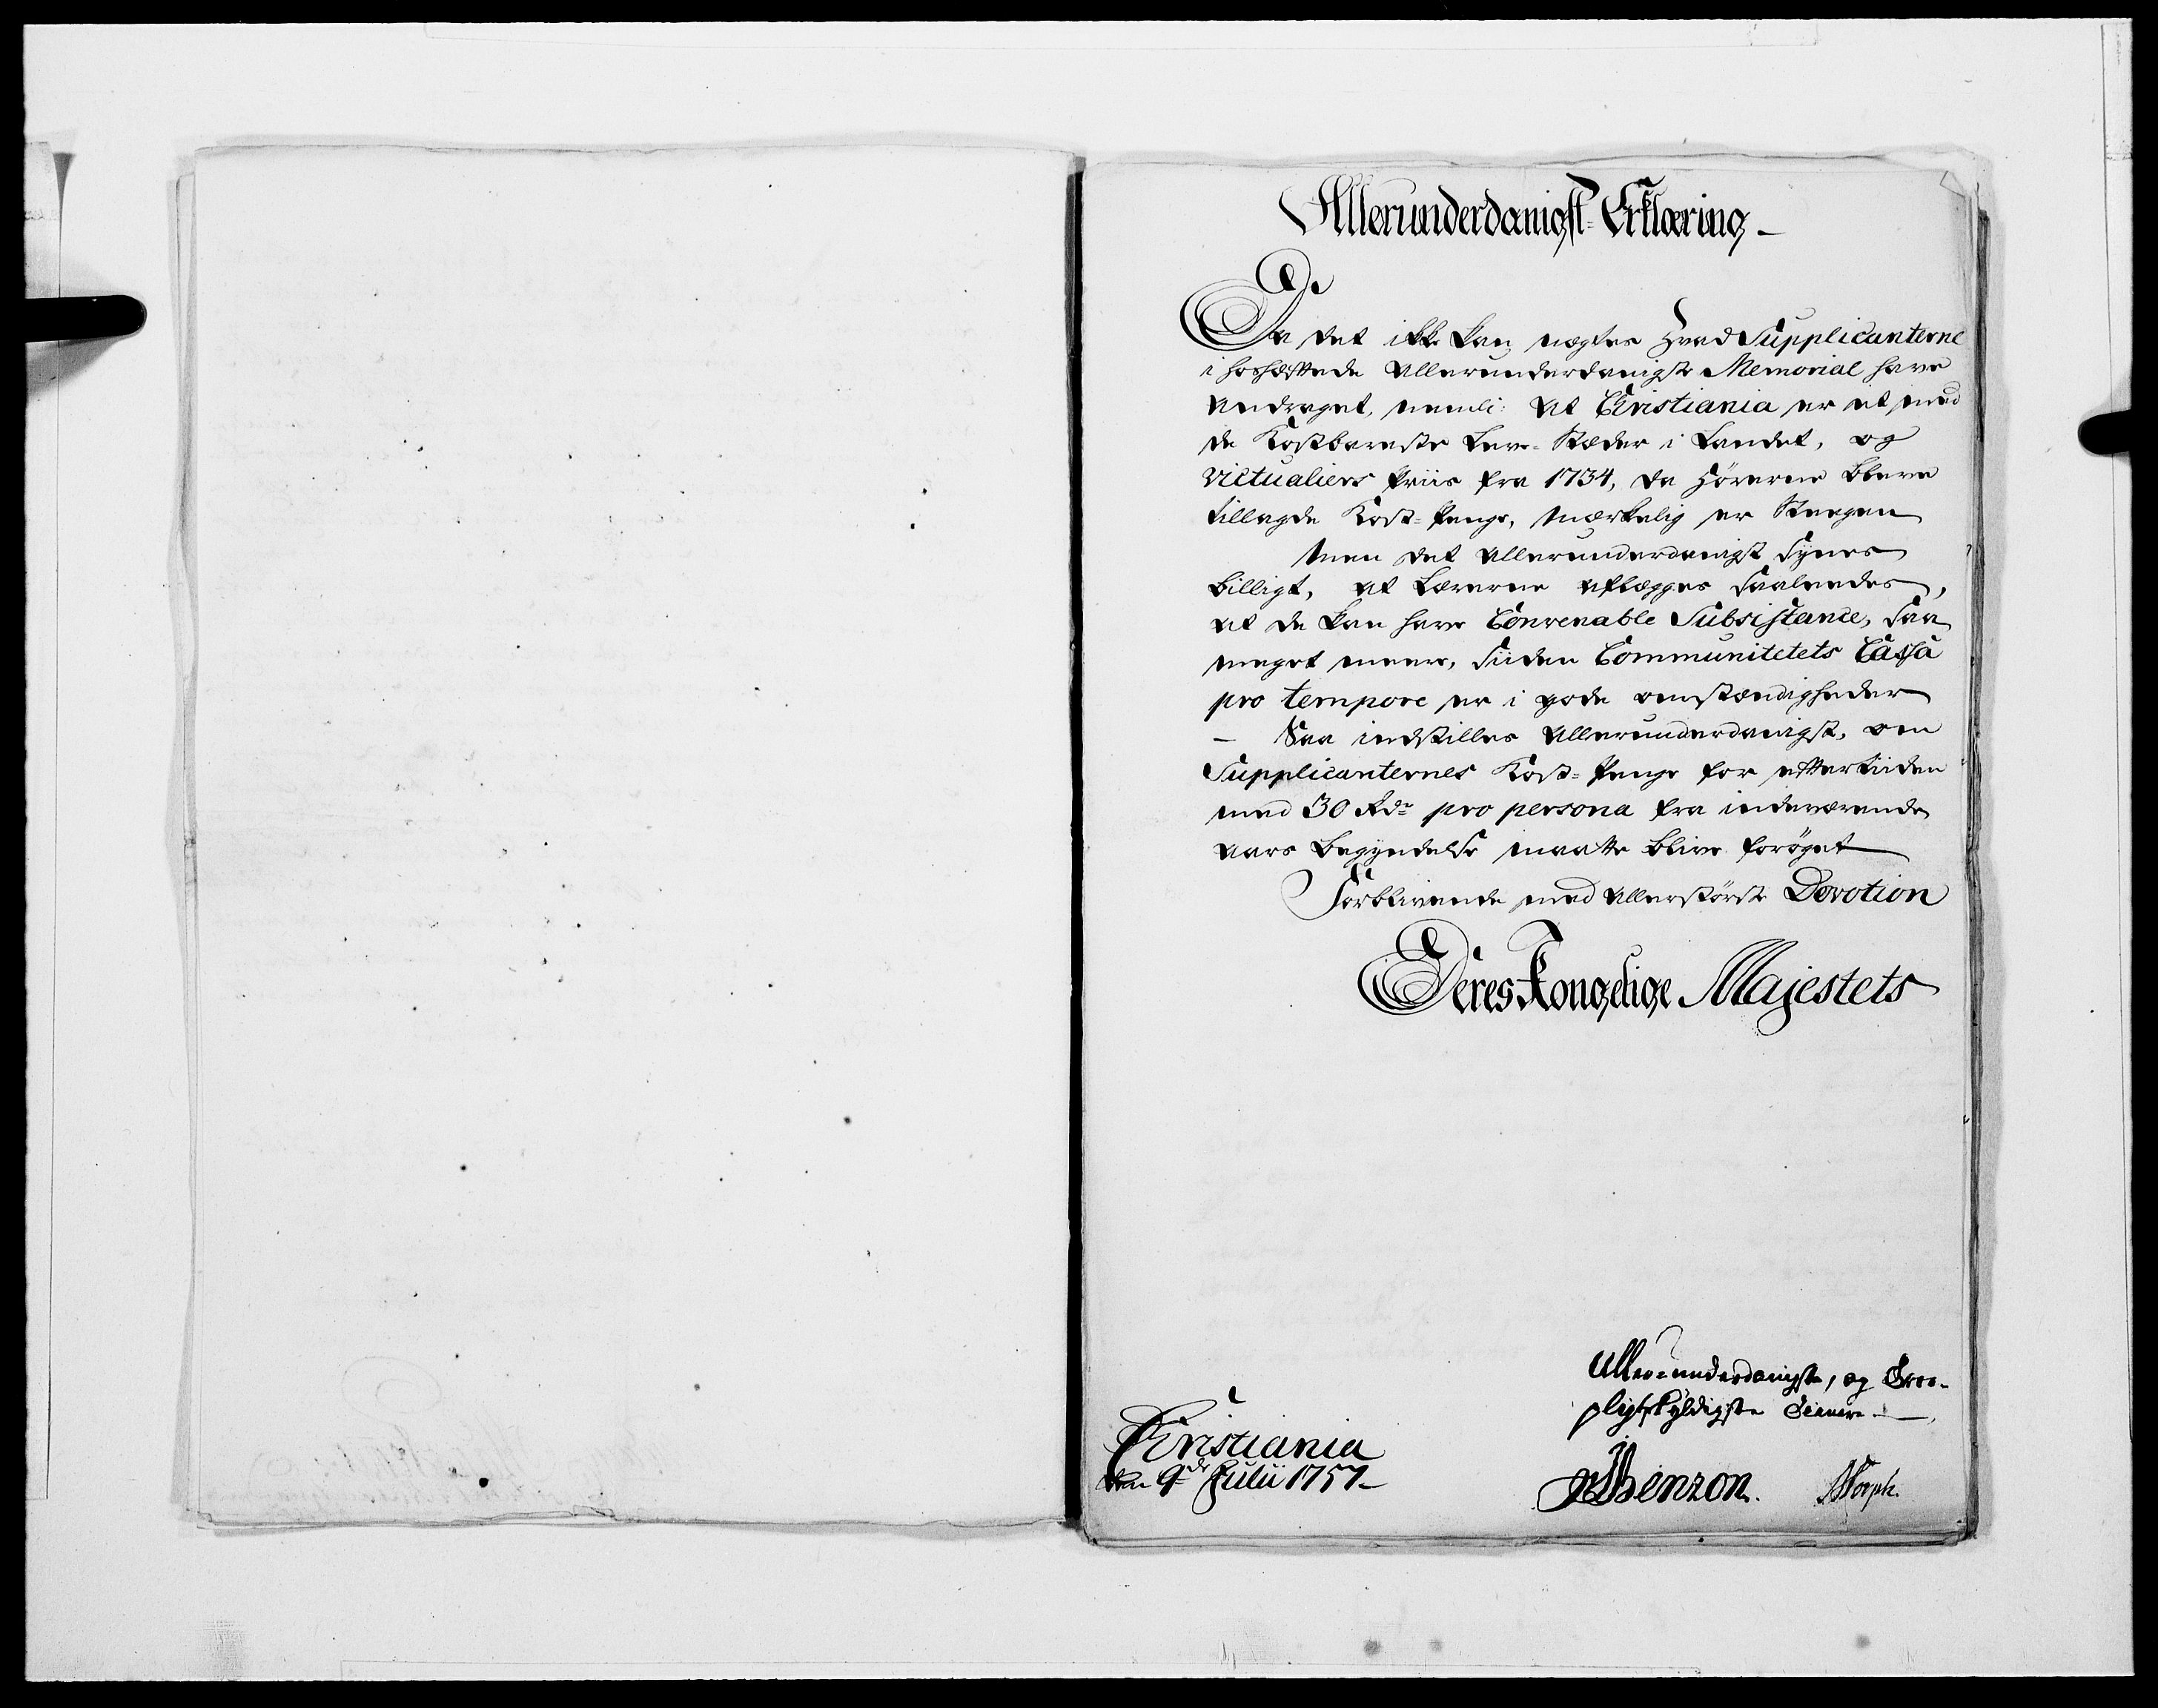 Allerunderdanigst Erklæring
Da det ikke kan nægtes hvad Supplicanterne
i hoshæftede allerunderdanigste Memorial have
andraget, nemli: at Christiania er et med
de kostbareste Leve-Stæder i Landet, og
Victualiers Priis fra 1734, da Hörerne bleve
tillagde Kost-Penge, mærkelig er steegen
Men det allerunderdanigst synes
billigt, at Lærerne aflægges saaleedes,
at de kan have Convenable Subsistance, saa
meget meere, siiden Communitetets Cassa
pro tempore er i gode omstændigheder
- Saa indstilles allerunderdanigst, om
Supplicanternes Kost-Penge for efftertiiden
med 30 Rdr pro persona fra indeværende
aars begyndelse maatte blive forøget
Forblivende med allerstörste Devotion
Deres Kongelige Majestets
Allerunderdanigste, og Troe-
pligtskyldigste Tienere
Christiania
den 9de Julii 1757
Benzon.